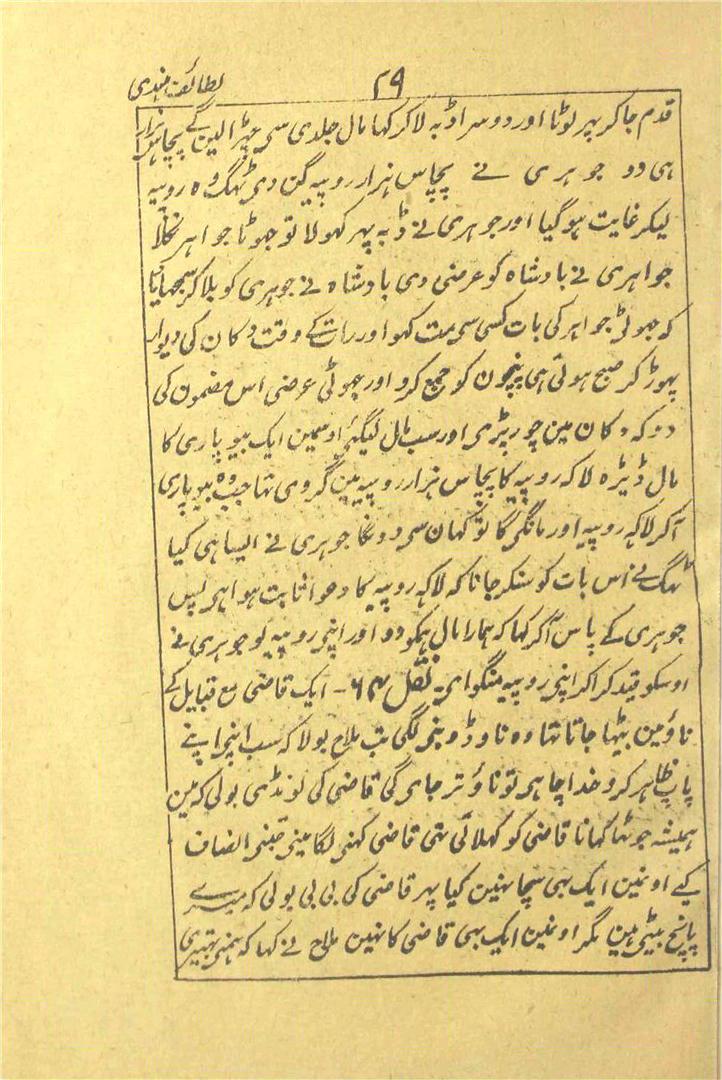 لطائف ہندی
۲۹
قدم جاکر پہر لوٹا اور دوسرا ڈبہ لاکر کہا مال جلدی سی چہڑا لین گے پچاس ہزار
ہی دو جوہری نے پچاس ہزار روپیہ گن دی ٹہگ وہ روپیہ
لیکر غایت ہوگیا اور جوہری نے ڈبہ پہر کہولا تو جہوٹا جواہر نکلا
جواہری نے بادشاہ کو عرضی دی بادشاہ نے جوہری کو بلاکر سمجہایا
کہ جہوٹی جواہر کی بات کسی سی مت کہو اور رات کے وقت دکان کی دیوار
پہوڑ کر صبح ہوتی ہی پنچون کو جمع کرو اور جہوٹی عرضی اس مضمون کی
دو کہ دکان مین چور پڑی اور سب مال لیگئے اوسمین ایک بیوپاری کا
مال ڈیڑہ لاکہ روپیہ کا پچاس ہزار روپیہ مین گروی تہا جب وہ بیوپاری
آکر لاکہہ روپیہ اور مانگی گا تو کہان سی دونگا جوہری نے ایسا ہی کیا
ٹہگ نے اس بات کو سنکر جانا کہ لاکہہ روپیہ کا دعوا ثابت ہوا ہی پس
جوہری کے پاس آکر کہا کہ ہمارا مال ہمکو دو اور اپنی روپیہ لو جوہری نے
اوسکو قید کراکر اپنی روپیہ منگوا لی۔ نقل ۶۳ - ایک قاضی مع قبایل کے
ناؤ مین بیٹہا جاتا تہا وہ ناو ڈوبنی لگی تب ملاح بولا کہ سب اپنی اپنے
پاپ ظاہر کرو خدا چاہی تو ناؤ تر جای گی قاضی کی لونڈی بولی کہ مین
ہمیشہ جوٹہا کہانا قاضی کو کہلاتی تہی قاضی کہنی لگا مینی جتنی انصاف
کیے اونمین ایک بہی سچا نہین کیا پہر قاضی کی بی بی بولی کہ میرے
پانچ بیٹی ہین مگر اونمین ایک بہی قاضی کا نہین ملاح نے کہا کہ ہمنی بہتیری